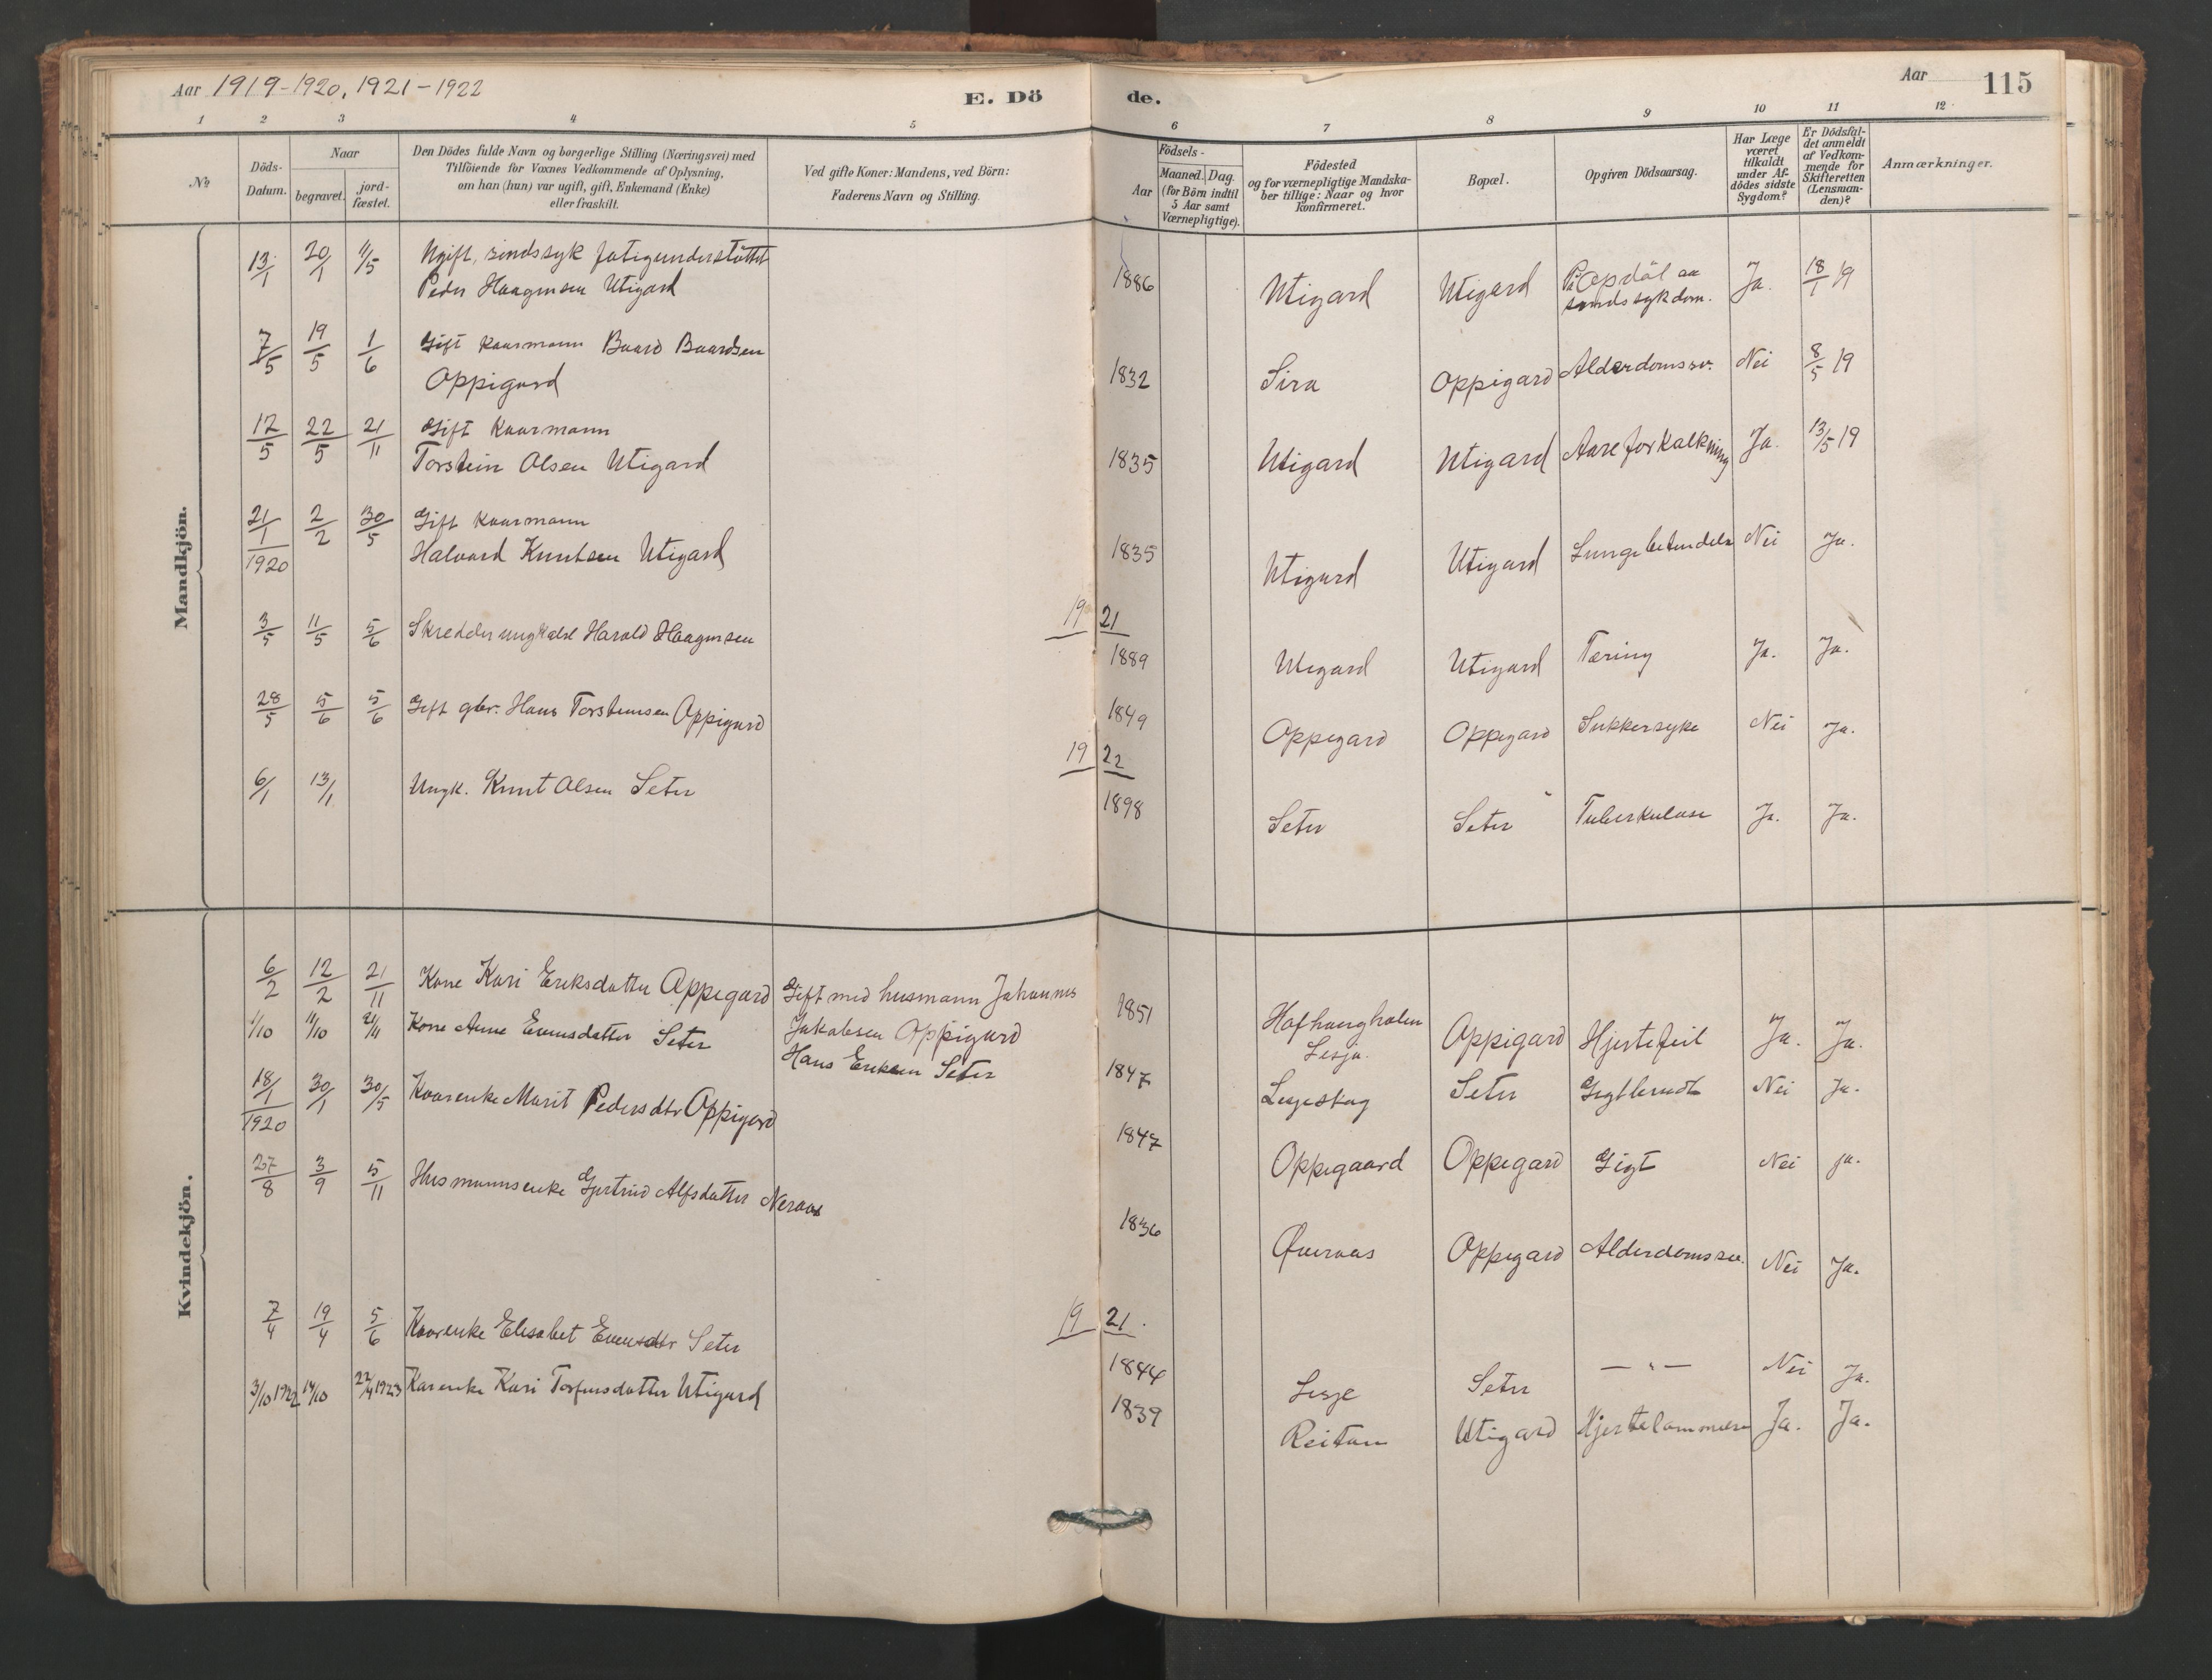 Aar 1919-1920, 1921-1922
E. Dö de.
Aar 115
1 2 3 4 5 6 7 8 9 10 11 12
No
Döds-Datum.
Naar
begravet.
jord-fæstet.
Den Dödes fulde Navn og borgerlige Stilling (Næringsvei) med
Tilföiende for Voxnes Vedkommende af Oplysning,
om han (hun) var ugift, gift, Enkemand (Enke)
eller fraskilt.
Ved gifte Koner: Mandens, ved Börn:
Faderens Navn og Stilling.
Födsels-
Aar
Maaned. Dag.
(for Börn indtil
5 Aar samt
Værnepligtige).
Födested
og for værnepligtige Mandska-
ber tillige: Naar og hvor
konfirmeret.
Bopæl.
Opgiven Dödsaarsag.
Har Læge
været
tilkaldt
under Af-
dödes sidste
Sygdom?
Er Dödsfal-
det anmeldt
af Vedkom-
mende for
Skifteretten
(Lensman-
den)?
Anmærkninger.
Mandkjön.
13/1 20/1 11/5 Ugift, sindssyk fatigunderstöttet
Peder Haagensen Utigard 1886 Utigard Utigard På Opdöl av
sindssykdom. Ja. 18/1 19
7/5 19/5 1/6 Gift kaarmann Baard Baardsen
Oppigard 1832 Lira Oppigard Alderdomssv. Nei 8/5 19
12/5 22/5 21/11 Gift kaarmann
Torstein Olsen Utigard 1835 Utigard Utigard Aareforkalkning Ja. 13/5 19
21/1 1920 2/2 30/5 Gift kaarmann
Halvard Knutsen Utigard 1835 Utigard Utigard Lungebetendelse Nei Ja.
19 21
3/5 11/5 5/6 Skredder ungkarl Harald Haagensen 1889 Utigard Utigard Tæring Ja. Ja.
28/5 5/6 5/6 Gift gbr. Hans Torsteinsen Oppigard 1849 Oppegard Oppegard Sukkersyke Nei Ja.
19 22
6/1 13/1 Ungk. Knut Olsen Seter 1898 Seter Seter Tuberkulose Ja. Ja.
Kvindekjön.
6/2 12/2 21/11 Kone Kari Eriksdatter Oppegard Gift med husmann Johannes
Jakobsen Oppigard 1851 Lesja. Oppigard Hjertefeil Ja. Ja.
1/10 11/10 21/11 Kone Anne Evensdatter Seter Hans Eriksen Seter 1847 Lesjeskog Seter Nei Ja.
18/1 1920 30/1 30/5 Kaarenke Marit Pedersdtr Oppigard 1847 Oppegaard Oppegard Gigt Nei ja.
27/8 3/9 5/11 Husmannsenke Gjertrud Alfsdatter Neraas 1836 Oppegard Alderdomssv. Nei Ja.
19 21.
7/4 19/4 5/6 Kaarenke Elisabet Evensdtr Seter 1844 Lesje Seter — " — Nei Ja.
3/10 1922 14/10 22/4 1923 Karenke Kari Torfinsdatter Utigard 1839 Reitan Utigard Hjertelammelse Ja. Ja.